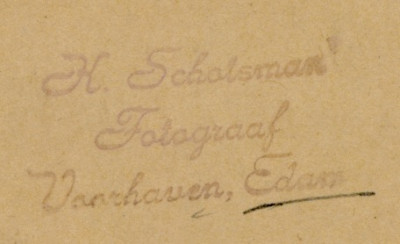 H. Scholsman
Fotograaf
Voorhaven, Edam